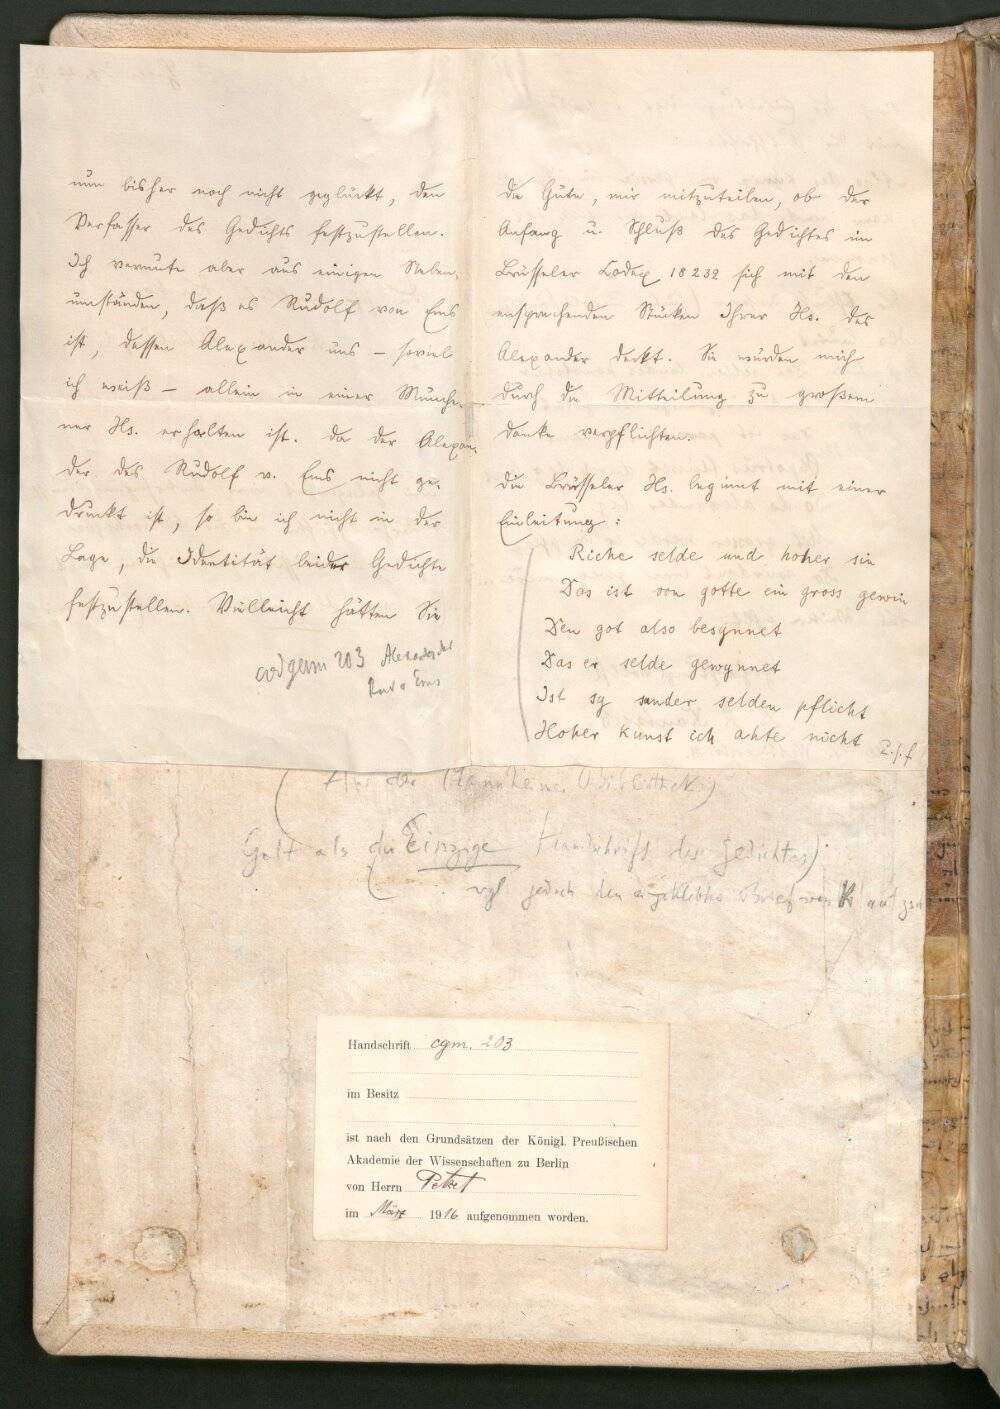 nun bisher noch nicht geglückt, den
Verfasser des Gedichts festzustellen.
Ich vermute aber aus einigen Neben-
umständen, daß es Rudolf von Ems
ist, dessen Alexander uns – soviel
ich weiß – allein in einer Münche-
ner Hs. erhalten ist. Da der Alexan-
der des Rudolf v. Ems nicht ge-
druckt ist, so bin ich nicht in der
Lage, die Identität beider Gedichte
festzustellen. Vielleicht hätten Sie
cod germ 203 Alexander des
Rud v Ems
die Güte, mir mitzuteilen, ob der
Anfang u. Schluß des Gedichtes im
Brüsseler Codex 18232 sich mit den
entsprechenden Stücken Ihrer Hs. des
Alexander deckt. Sie würden mich
durch die Mitteilung zu großem
Danke verpflichten.
Die Brüsseler Hs. beginnt mit einer
Einleitung:
Riche selde und hoher sin
Das ist von gotte ein gross gewin
Den got also besynnet
Das er selde gewynnet
Ist sy sunder selden pflicht
Hoher kunst ich ahte nicht u.s.f
(Aus der Mannheimer Bibliothek)
Galt als die Einzige Handschrift des Gedichtes)
vgl jedoch den eingeklebten Brief von
Handschrift cgm. 203
im Besitz
ist nach den Grundsätzen der Königl. Preußischen
Akademie der Wissenschaften zu Berlin
von Herrn Petzet
im März 1916 aufgenommen worden.